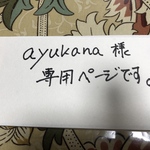 ayukana 様
専用ページです。